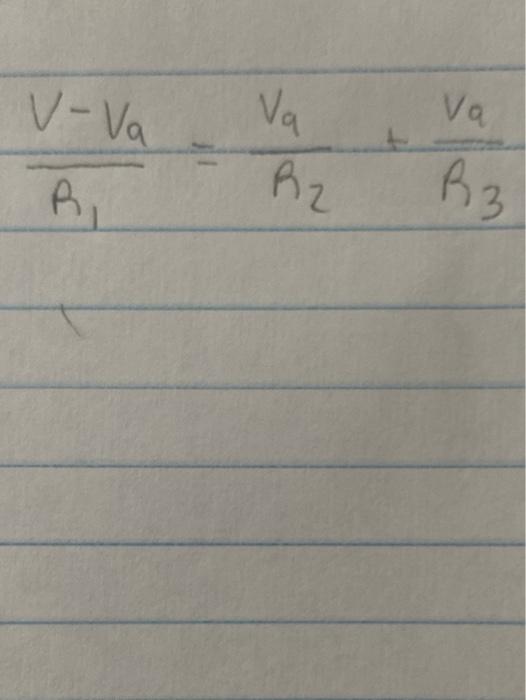 V - Va / R1 = Va / R2 + Va / R3